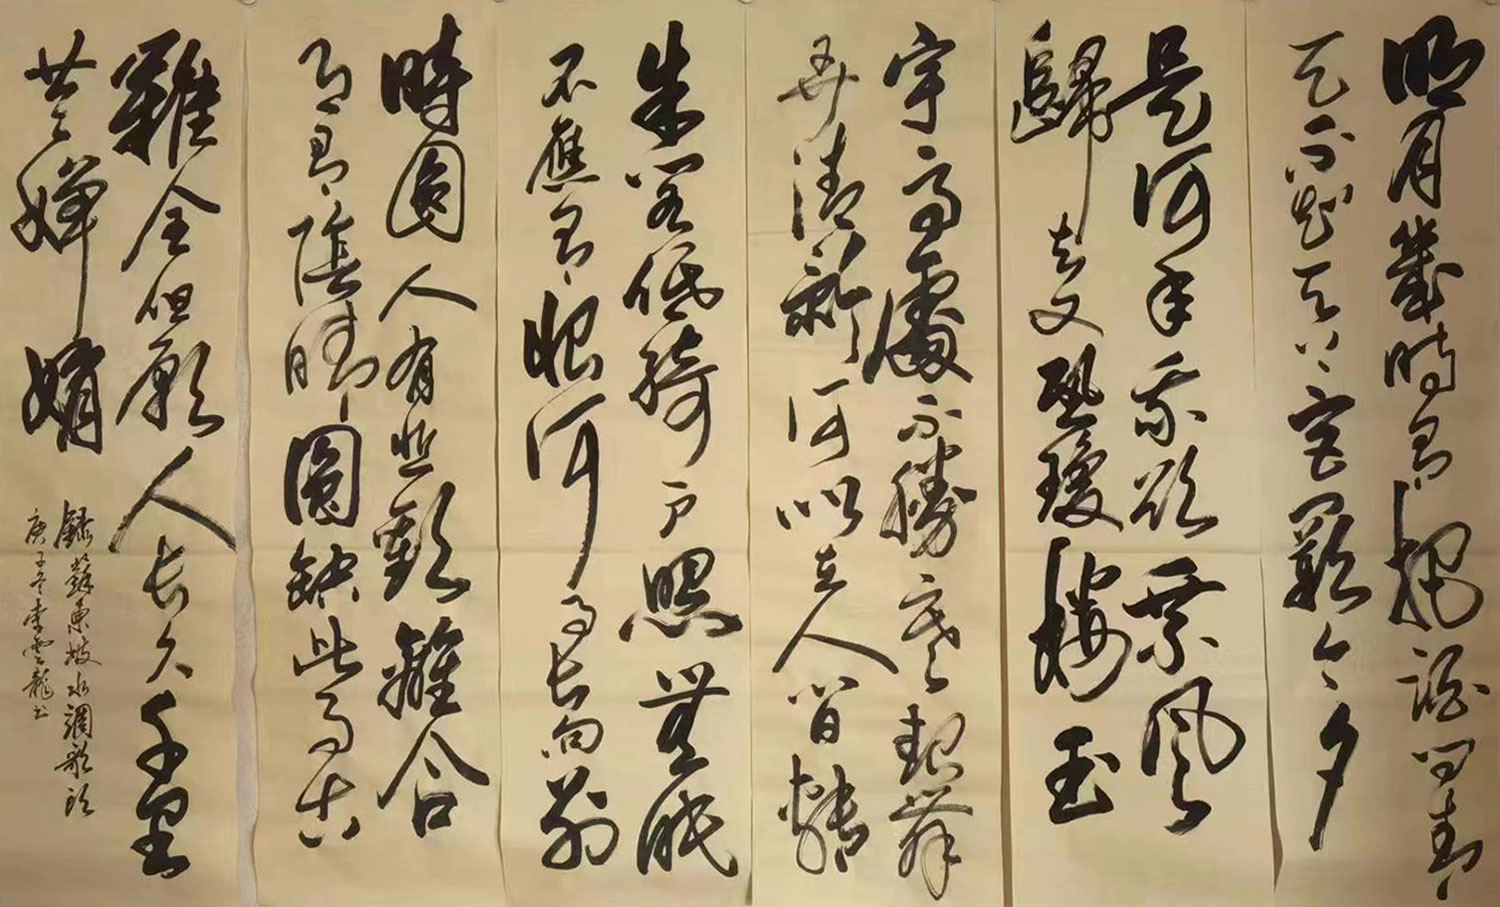 明月幾時有把酒問青
天不知天上宮闕今夕
是何年我欲乘風
歸去又恐瓊樓玉
宇高處不勝寒起舞
弄清影何似在人間轉
朱閣低綺戶照無眠
不應有恨何事長向別
時圓人有悲歡離合
月有陰晴圓缺此事古
難全但願人長久千里
共嬋娟
錄蘇東坡水調歌頭
庚子冬李雲龍書